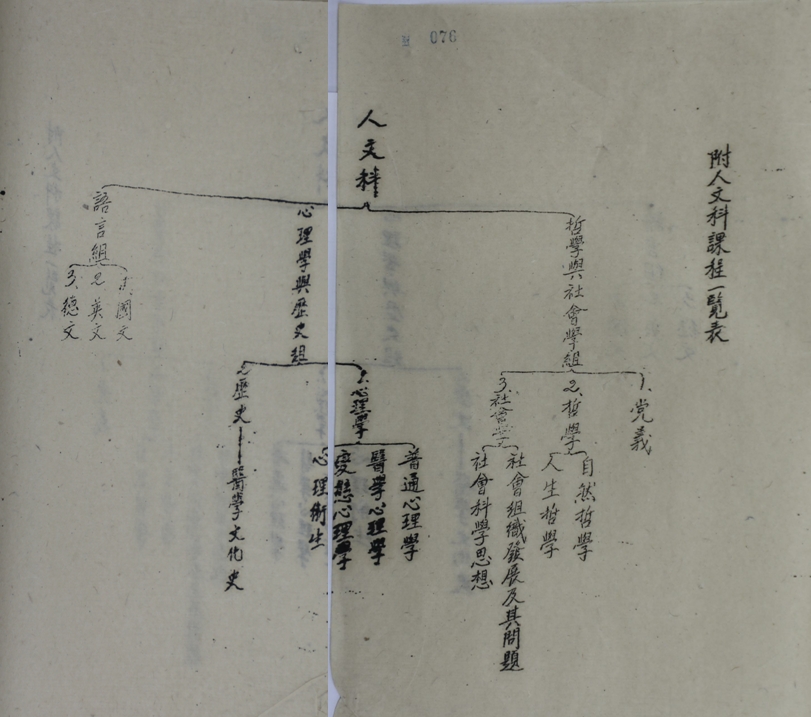 076
附人文科課程一覽表
人文科
哲學與社會學組
1.党義
2.哲學
自然哲學
人生哲學
3.社會學
社會組織發展及其問題
社會科學思想
心理學與歷史組
1.心理學
普通心理學
醫學心理學
變態心理學
心理衛生
2.歷史—醫學文化史
語言組
1.國文
2.英文
3.德文